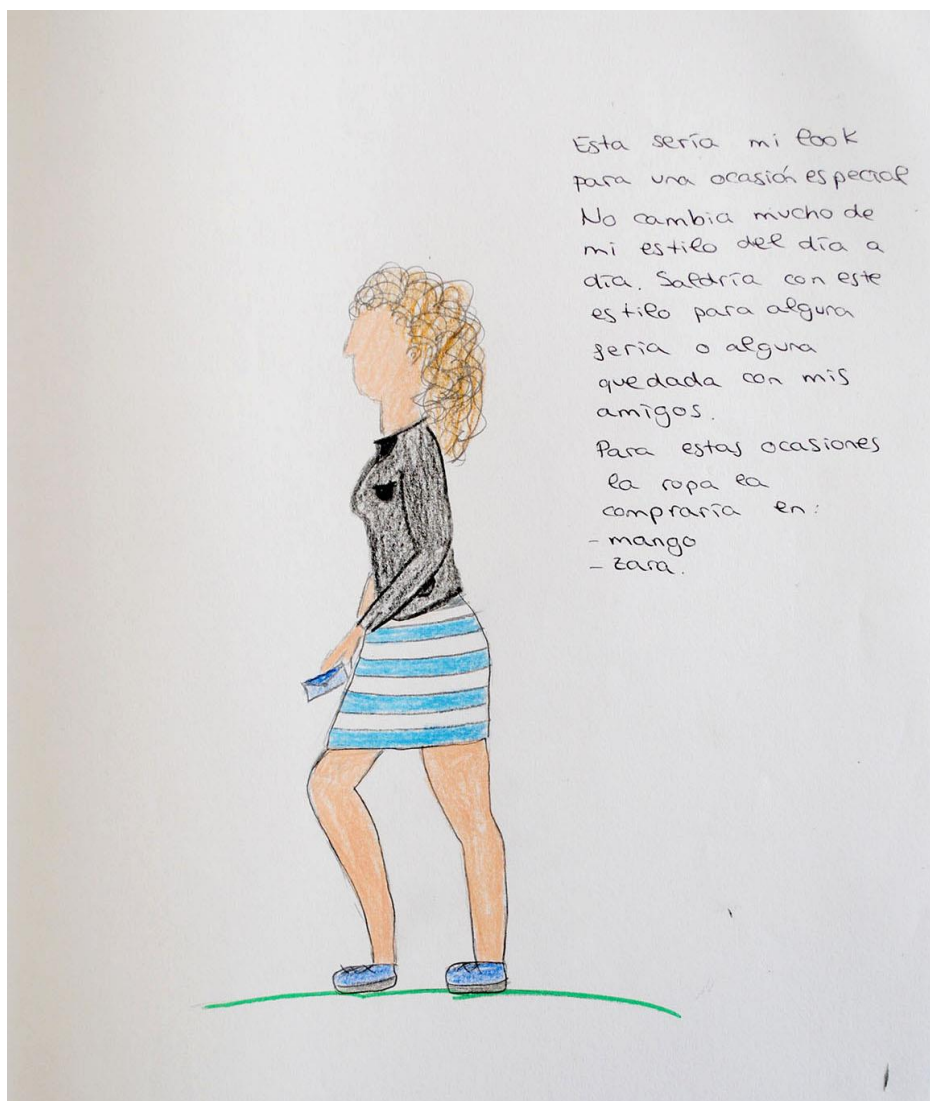 Esta sería mi look
para una ocasión especial
No cambia mucho de
mi estilo del día a
día. Saldría con este
estilo para alguna
feria o alguna
quedada con mis
amigos.
Para estas ocasiones
la ropa la
compraría en:
- mango
- zara.